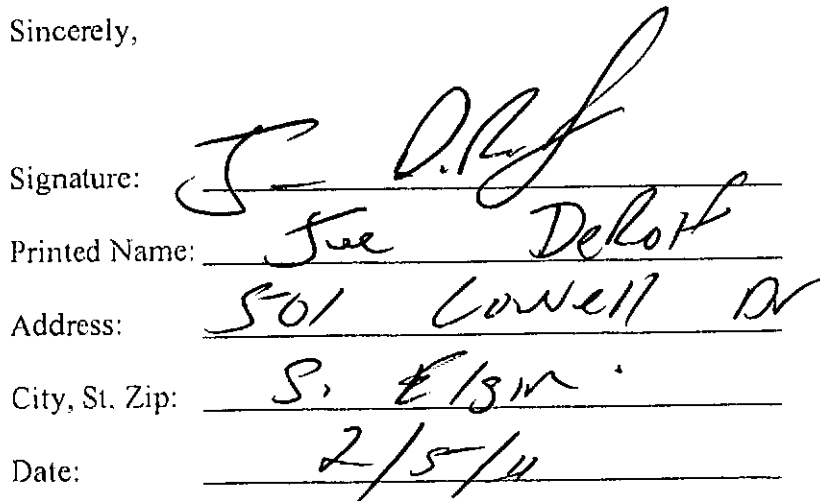 Sincerely,
Signature: J D.R
Printed Name: Joe DeRolf
Address: 501 Lowell Dr
City, St. Zip: S. Elgin
Date: 2/5/11